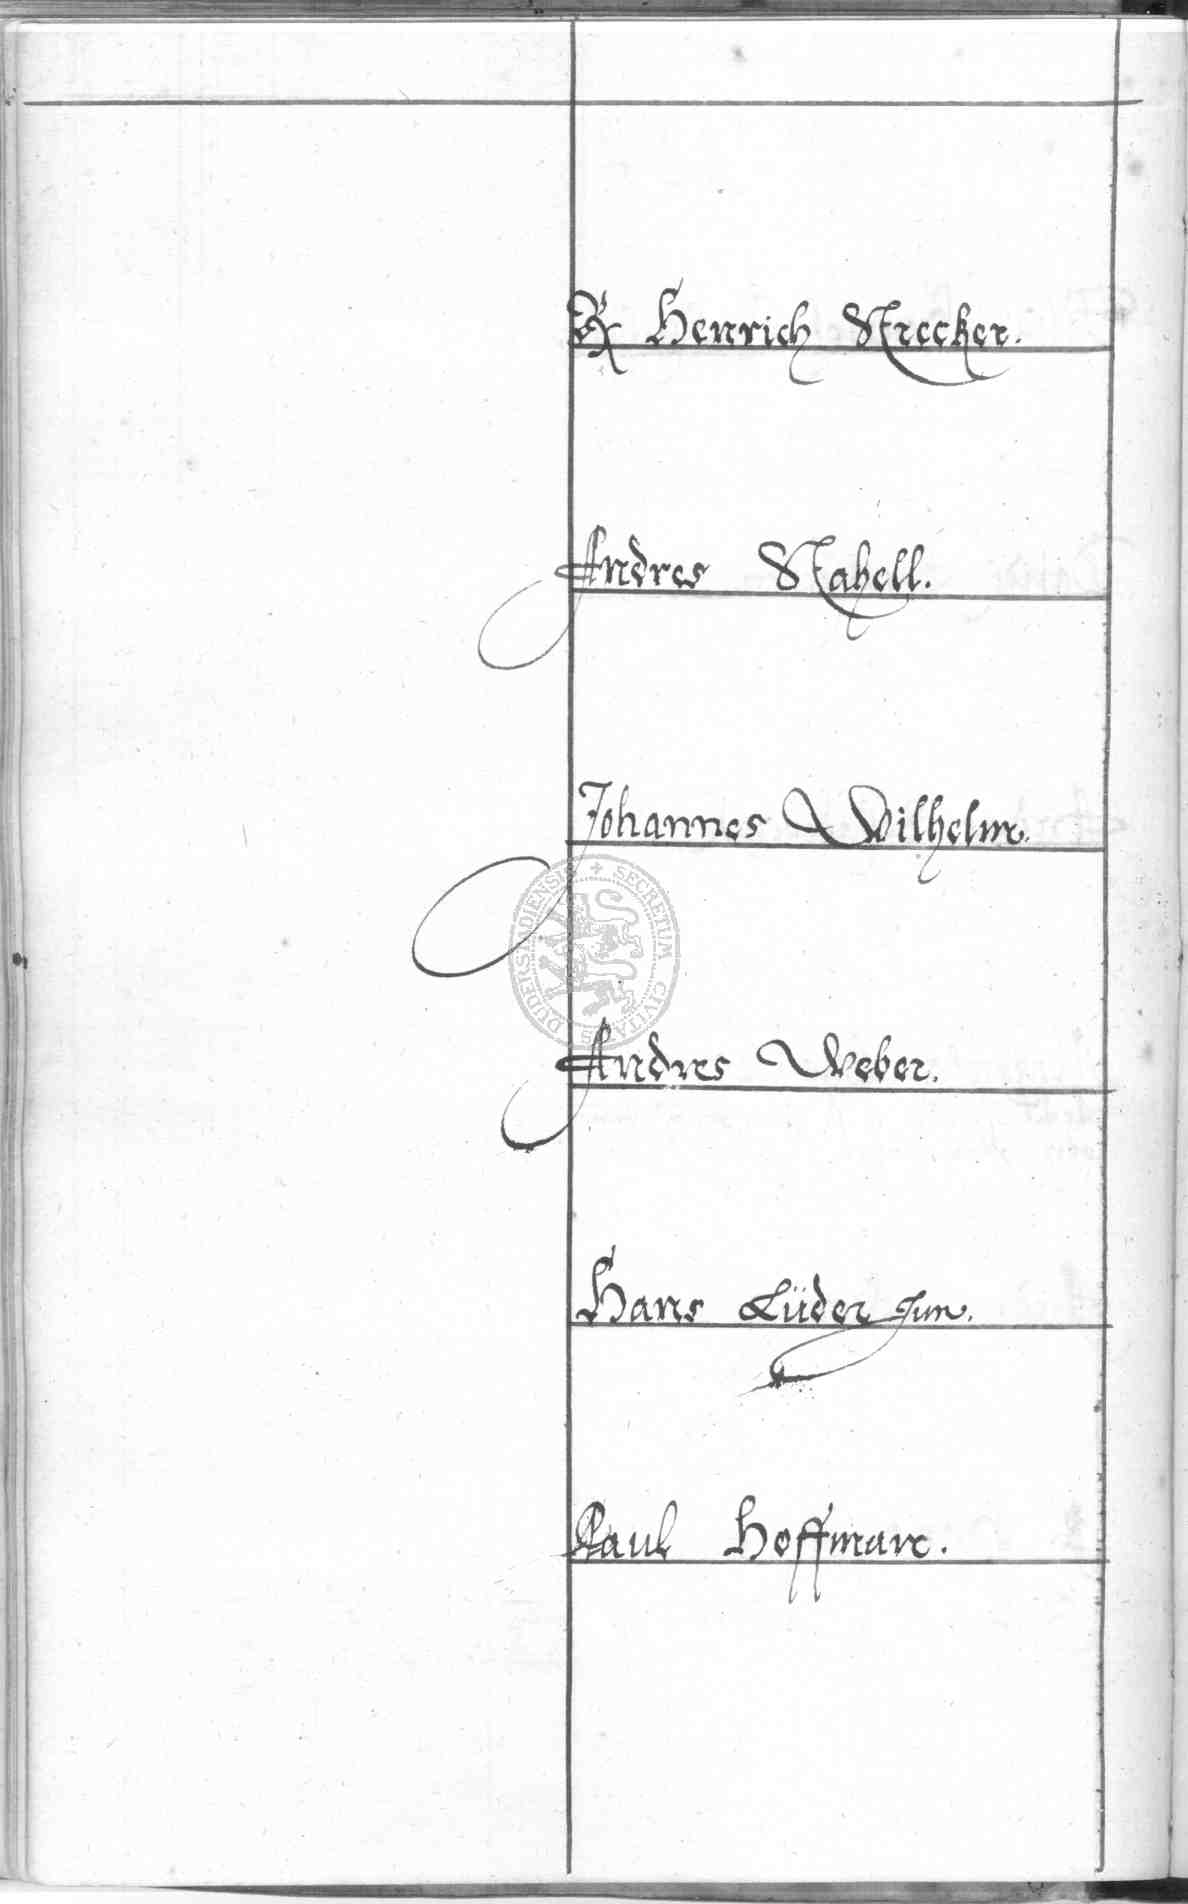 Henrich Strecker.
Andres Stahell.
Johannes Wilhelm.
Andres Weber.
Hans Lüder Jun.
Paul Hoffman.
SECRETUM CIVITA DUDERSTADIENSIS